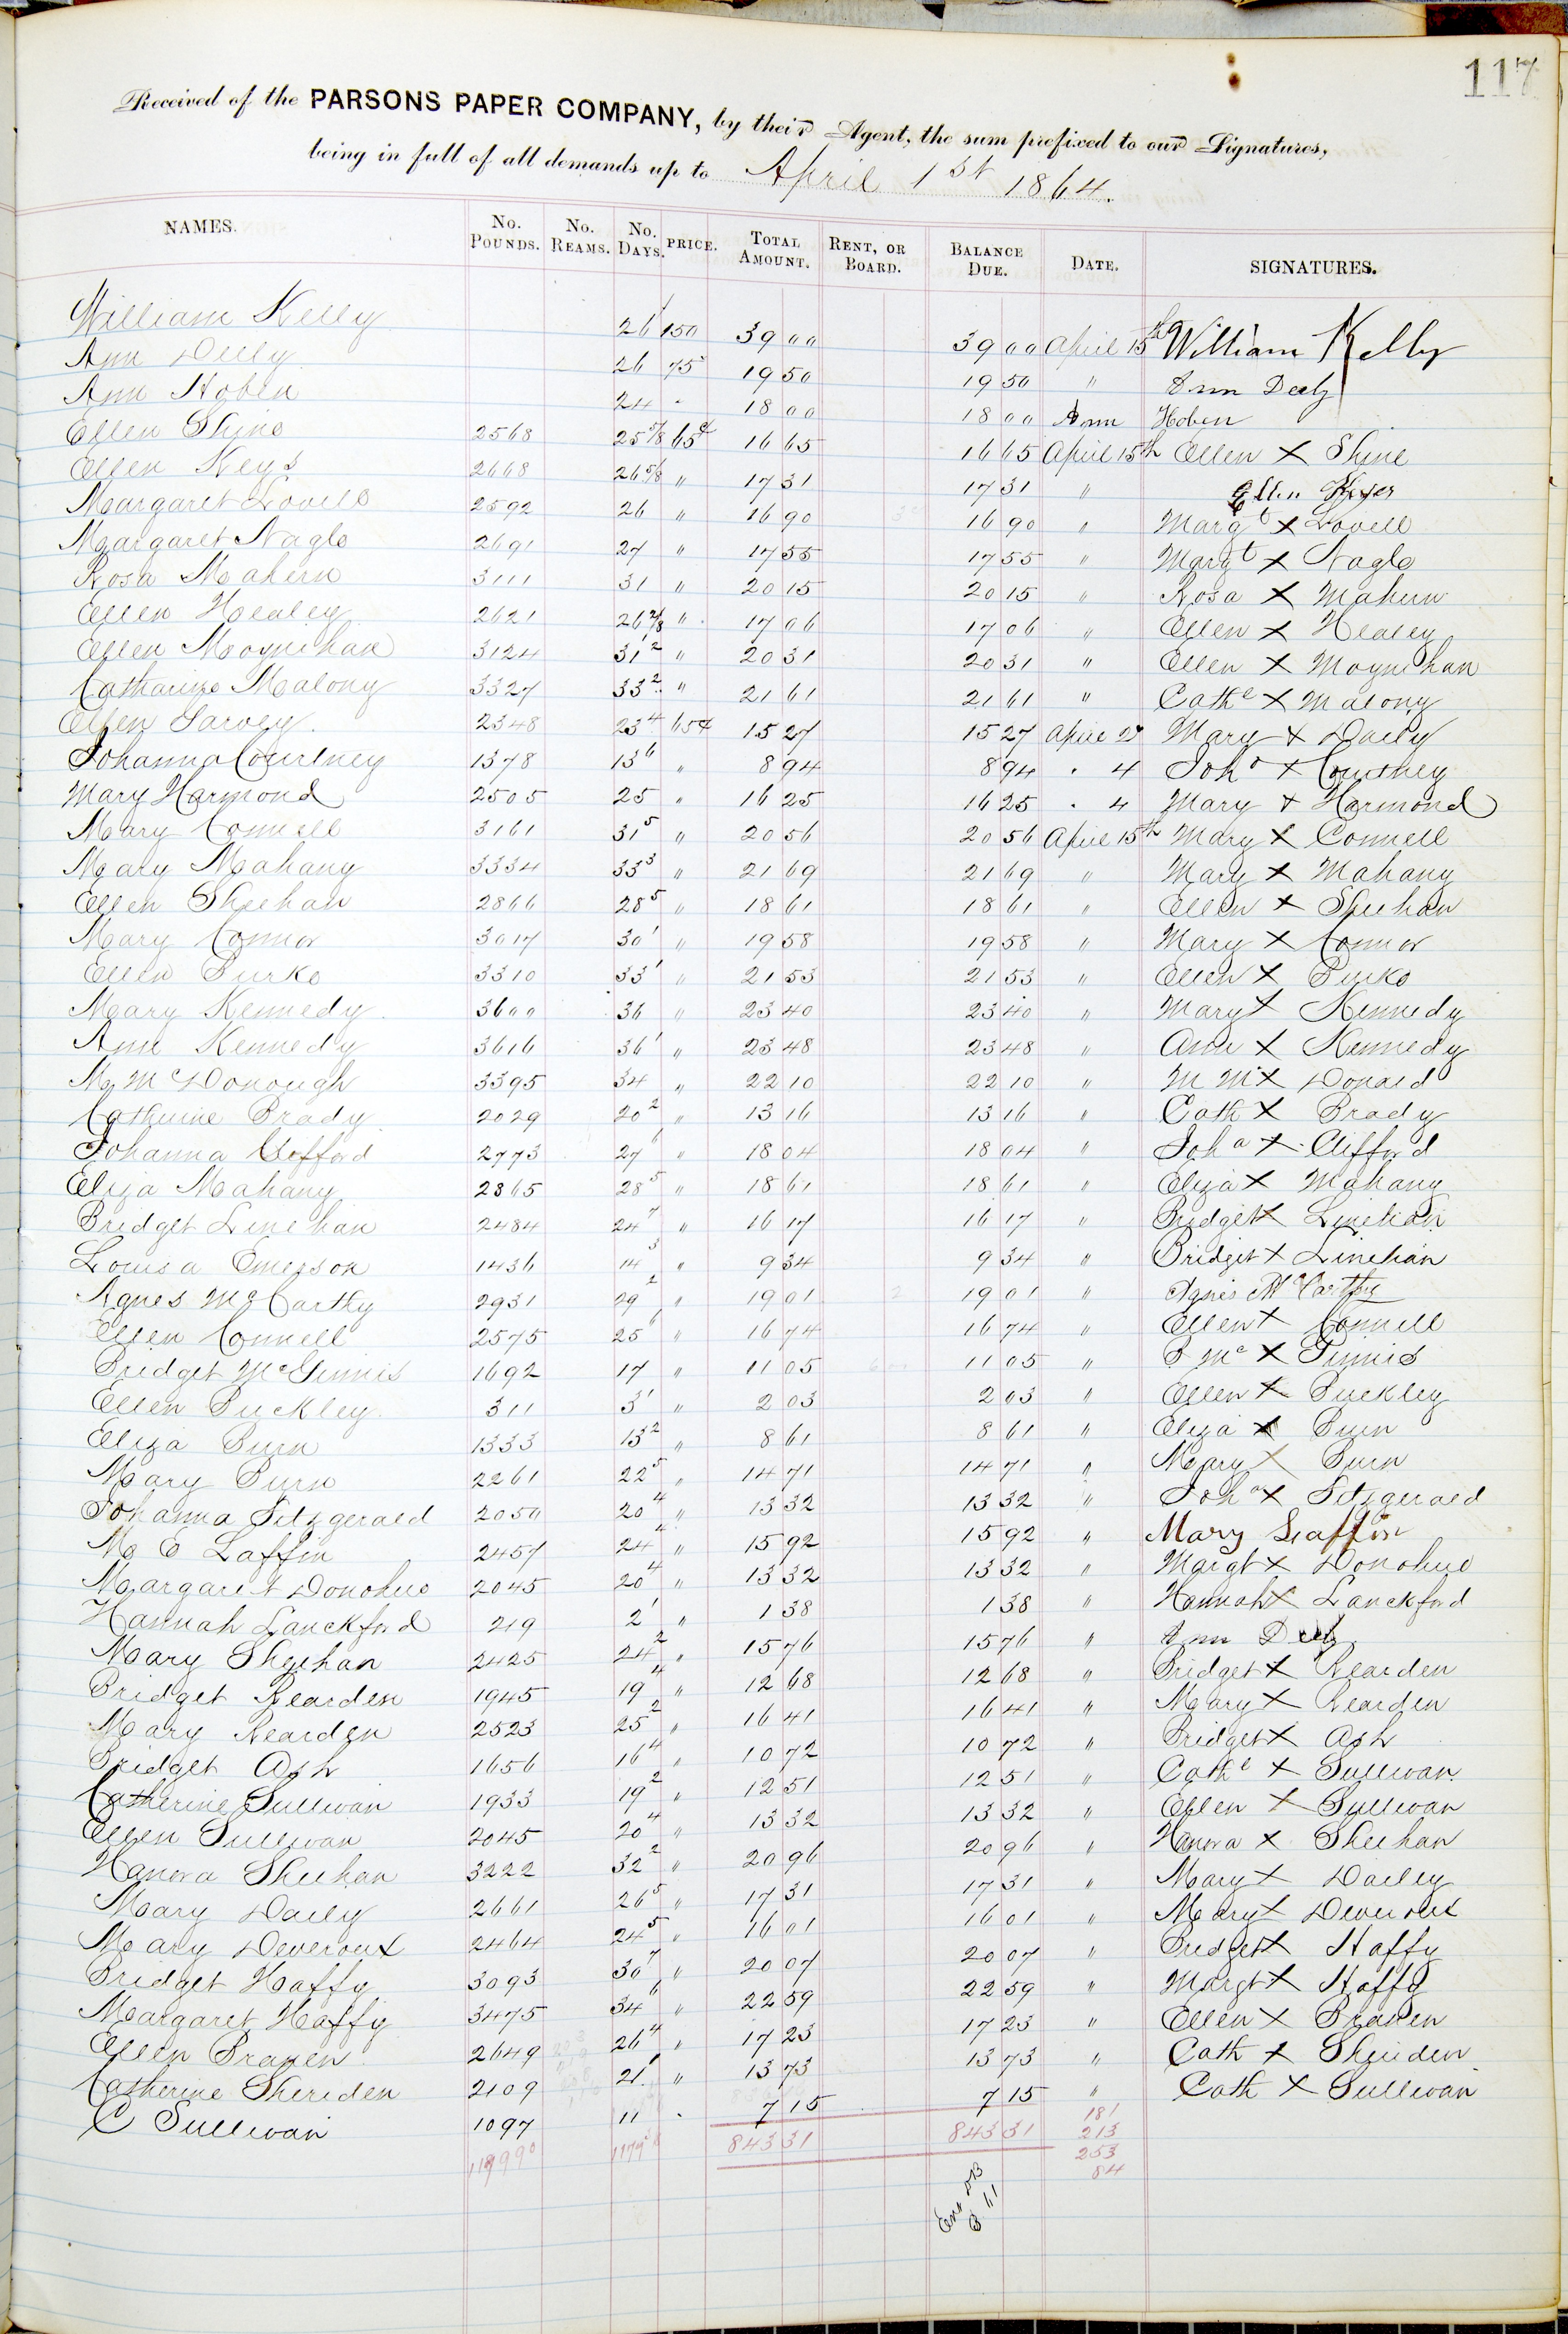 117
Received of the PARSONS PAPER COMPANY, by their Agent, the sum prefixed to our Signatures,
being in full of all demands up to April 1st 1864.
NAMES. No. POUNDS. No. REAMS. No. DAYS. PRICE. TOTAL AMOUNT. RENT, OR BOARD. BALANCE DUE. DATE. SIGNATURES.
William Kelly 26 150 39 00 39 00 April 15th William Kelly
Ann Deely 26 75 19 50 19 50 " Ann Deely
Ann Hoben 24 " 18 00 18 00 Ann Hoben
Ellen Shine 2568 25 5/8 65¢ 16 65 16 65 April 15th Ellen X Shine
Ellen Keys 2668 26 5/8 " 17 31 17 31 " Ellen Keyes
Margaret Lovell 2592 26 " 16 90 16 90 " Margt X Lovell
Margaret Nagle 2691 27 " 17 55 17 55 " Margt X Nagle
Rosa Mahern 3111 31 " 20 15 20 15 " Rosa X Mahern
Ellen Healey 2621 26 2/8 " 17 06 17 06 " Ellen X Healey
Ellen Moynihan 3124 31 2 " 20 31 20 31 " Ellen X Moynihan
Catharine Malony 3327 33 2 " 21 61 21 61 " Cathe X Malony
Ellen Garvey 2348 23 4 65¢ 15 27 15 27 April 2d Mary X Daily
Johanna Courtney 1378 13 6 " 8 94 8 94 " 4 Joha X Courtney
Mary Harmond 2505 25 " 16 25 16 25 " 4 Mary X Harmond
Mary Connell 3161 31 5 " 20 56 20 56 April 15th Mary X Connell
Mary Mahany 3334 33 3 " 21 69 21 69 " Mary X Mahany
Ellen Sheehan 2866 28 5 " 18 61 18 61 " Ellen X Sheehan
Mary Connor 3017 30 1 " 19 58 19 58 " Mary X Connor
Ellen Burke 3310 33 1 " 21 53 21 53 " Ellen X Burke
Mary Kennedy 3600 36 " 23 40 23 40 " Mary X Kennedy
Ann Kennedy 3616 36 1 " 23 48 23 48 " Ann X Kennedy
M McDonough 3395 34 " 22 10 22 10 " M Mc X Donald
Catherine Brady 2029 20 2 " 13 16 13 16 " Cath X Brady
Johanna Clifford 2773 27 6 " 18 04 18 04 " Joha X Clifford
Eliza Mahany 2865 28 5 " 18 61 18 61 " Eliza X Mahany
Bridget Linehan 2484 24 7 " 16 17 16 17 " Bridget X Linehan
Louisa Emerson 1436 14 3 " 9 34 9 34 " Bridget X Linehan
Agnes McCarthy 2931 29 2 " 19 01 19 01 " Agnes McCarthy
Ellen Connell 2575 25 6 " 16 74 16 74 " Ellen X Connell
Bridget McGinnis 1692 17 " 11 05 11 05 " B Mc X Ginnis
Ellen Buckley 311 3 1 " 2 03 2 03 " Ellen X Buckley
Eliza Burn 1333 13 2 " 8 61 8 61 " Eliza X Burn
Mary Burn 2261 22 5 " 14 71 14 71 " Mary X Burn
Johanna Fitzgerald 2050 20 4 " 13 32 13 32 " Joha X Fitzgerald
M E Laffin 2457 24 4 " 15 92 15 92 " Mary Laffin
Margaret Donohue 2045 20 4 " 13 32 13 32 " Margt X Donohue
Hannah Lanckford 219 2 1 " 1 38 1 38 " Hannah X Lanckford
Mary Sheehan 2425 24 2 " 15 76 15 76 " Ann Deely
Bridget Rearden 1945 19 4 " 12 68 12 68 " Bridget X Rearden
Mary Rearden 2523 25 2 " 16 41 16 41 " Mary X Rearden
Bridget Ash 1656 16 4 " 10 72 10 72 " Bridget X Ash
Catherine Sullivan 1933 19 2 " 12 51 12 51 " Cathe X Sullivan
Ellen Sullivan 2045 20 4 " 13 32 13 32 " Ellen X Sullivan
Hanora Sheehan 3222 32 2 " 20 96 20 96 " Hanora X Sheehan
Mary Daily 2661 26 5 " 17 31 17 31 " Mary X Dailey
Mary Deveroux 2464 24 5 " 16 01 16 01 " Mary X Deveroux
Bridget Haffy 3093 30 7 " 20 07 20 07 " Bridget X Haffy
Margaret Haffy 3475 34 6 " 22 59 22 59 " Margt X Haffy
Ellen Braven 2649 26 4 " 17 23 17 23 " Ellen X Braven
Catherine Sheriden 2109 21 1 " 13 73 13 73 " Cath X Sheriden
C Sullivan 1097 11 " 7 15 7 15 " Cath X Sullivan
843 31 843 31 181
213
253
84